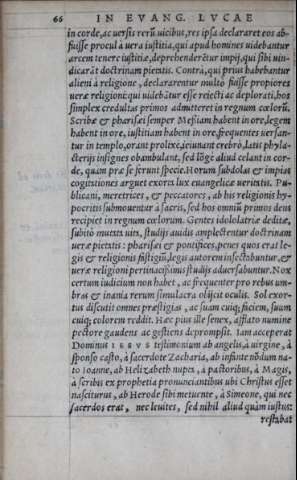 66 IN EVANG. LVCAE
in corde, ac uersis rerũ uicibus, res ipsa declararet eos ab-
fuisse procul à uera iustitia, qui apud homines uidebantur
arcem tenere iustitiæ, deprehenderẽtur impij, qui sibi uin-
dicarãt doctrinam pietatis. Contrà, qui prius habebantur
alieni à religione, declararentur multo fuisse propiores
ueræ religioni: qui uidebãtur esse reiecti ac deplorati, hos
simplex credulitas primos admitteret in regnum cœlorũ.
Scribæ & pharisæi semper Messiam habent in ore, legem
habent in ore, iustitiam habent in ore, frequentes uersan-
tur in templo, orant prolixe, ieiunant crebrò, latis phyla-
cterijs insignes obambulant, sed lõge aliud celant in cor-
de, quàm præ se ferunt specie. Horum subdolas & impias
cogitationes arguet exorta lux euangelicæ ueritatis. Pu-
blicani, meretrices, & peccatores, ab his religionis hy-
pocritis submouentur à sacris, sed hos omniũ primos deus
recipiet in regnum cœlorum. Gentes idololatriæ deditæ,
subitò mutata uita, studijs auidis amplectentur doctrinam
ueræ pietatis: pharisæi & pontifices, penes quos erat le-
gis & religionis fastigiũ, legis autorem insectabuntur, &
ueræ religioni pertinacissimis studijs aduersabuntur. Nox
certum iudicium non habet, ac frequenter pro rebus um-
bras & inania rerum simulacra obijcit oculis. Sol exor-
tus discutit omnes præstigias, ac suam cuiq; faciem, suum
cuiq; colorem reddit. Hæc pius ille senex, afflato numine
pectore gaudens ac gestiens deprompsit. Iam acceperat
Dominus IESVS testimonium ab angelis, à uirgine, à
sponso casto, à sacerdote Zacharia, ab infante nõdum na-
to Ioanne, ab Helizabeth nupta, à pastoribus, à Magis,
à scribis ex prophetia pronunciantibus ubi Christus esset
nasciturus, ab Herode sibi metuente, à Simeone, qui nec
sacerdos erat, nec leuites, sed nihil aliud quàm iustus:
restabat